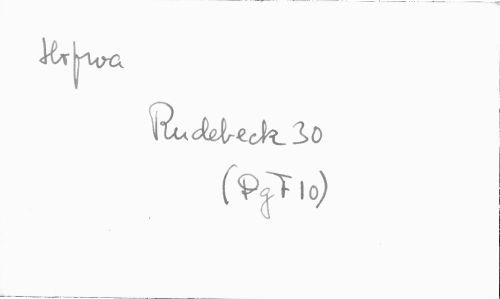 Hofwa
Rudebeck 30
(Pg F 10)